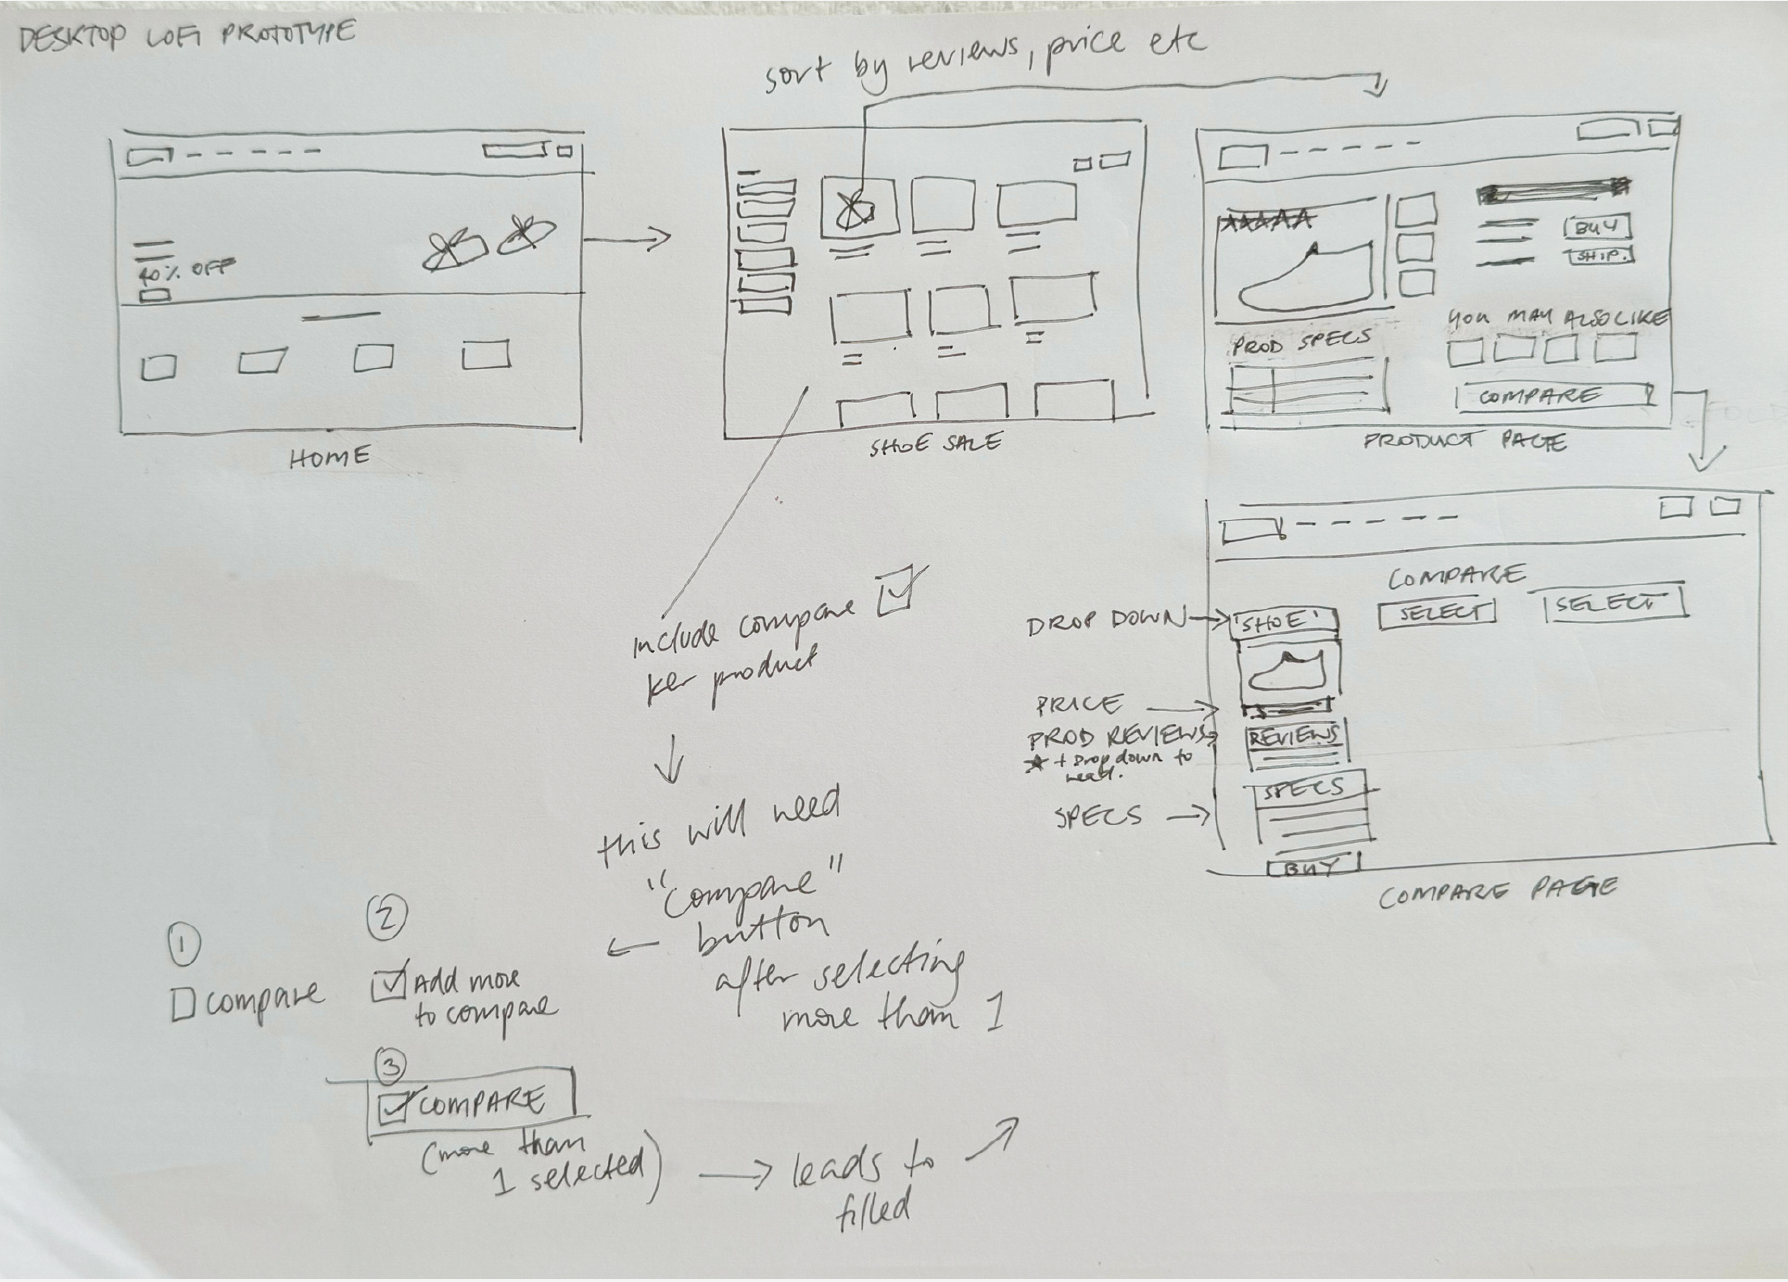 DESKTOP LOFI PROTOTYPE
sort by reviews, price etc
40% OFF
HOME
SHOE SALE
BUY
SHIP.
YOU MAY ALSO LIKE
PROD SPECS
COMPARE
PRODUCT PAGE
COMPARE
DROP DOWN
SHOE
SELECT
SELECT
PRICE
PROD REVIEWS
+ Drop down to
read.
REVIEWS
SPECS
SPECS
BUY
COMPARE PAGE
include compare
per product
this will need
"compare"
button
after selecting
more than 1
1
compare
2
Add more
to compare
3
COMPARE
(more than
1 selected)
leads to
filled